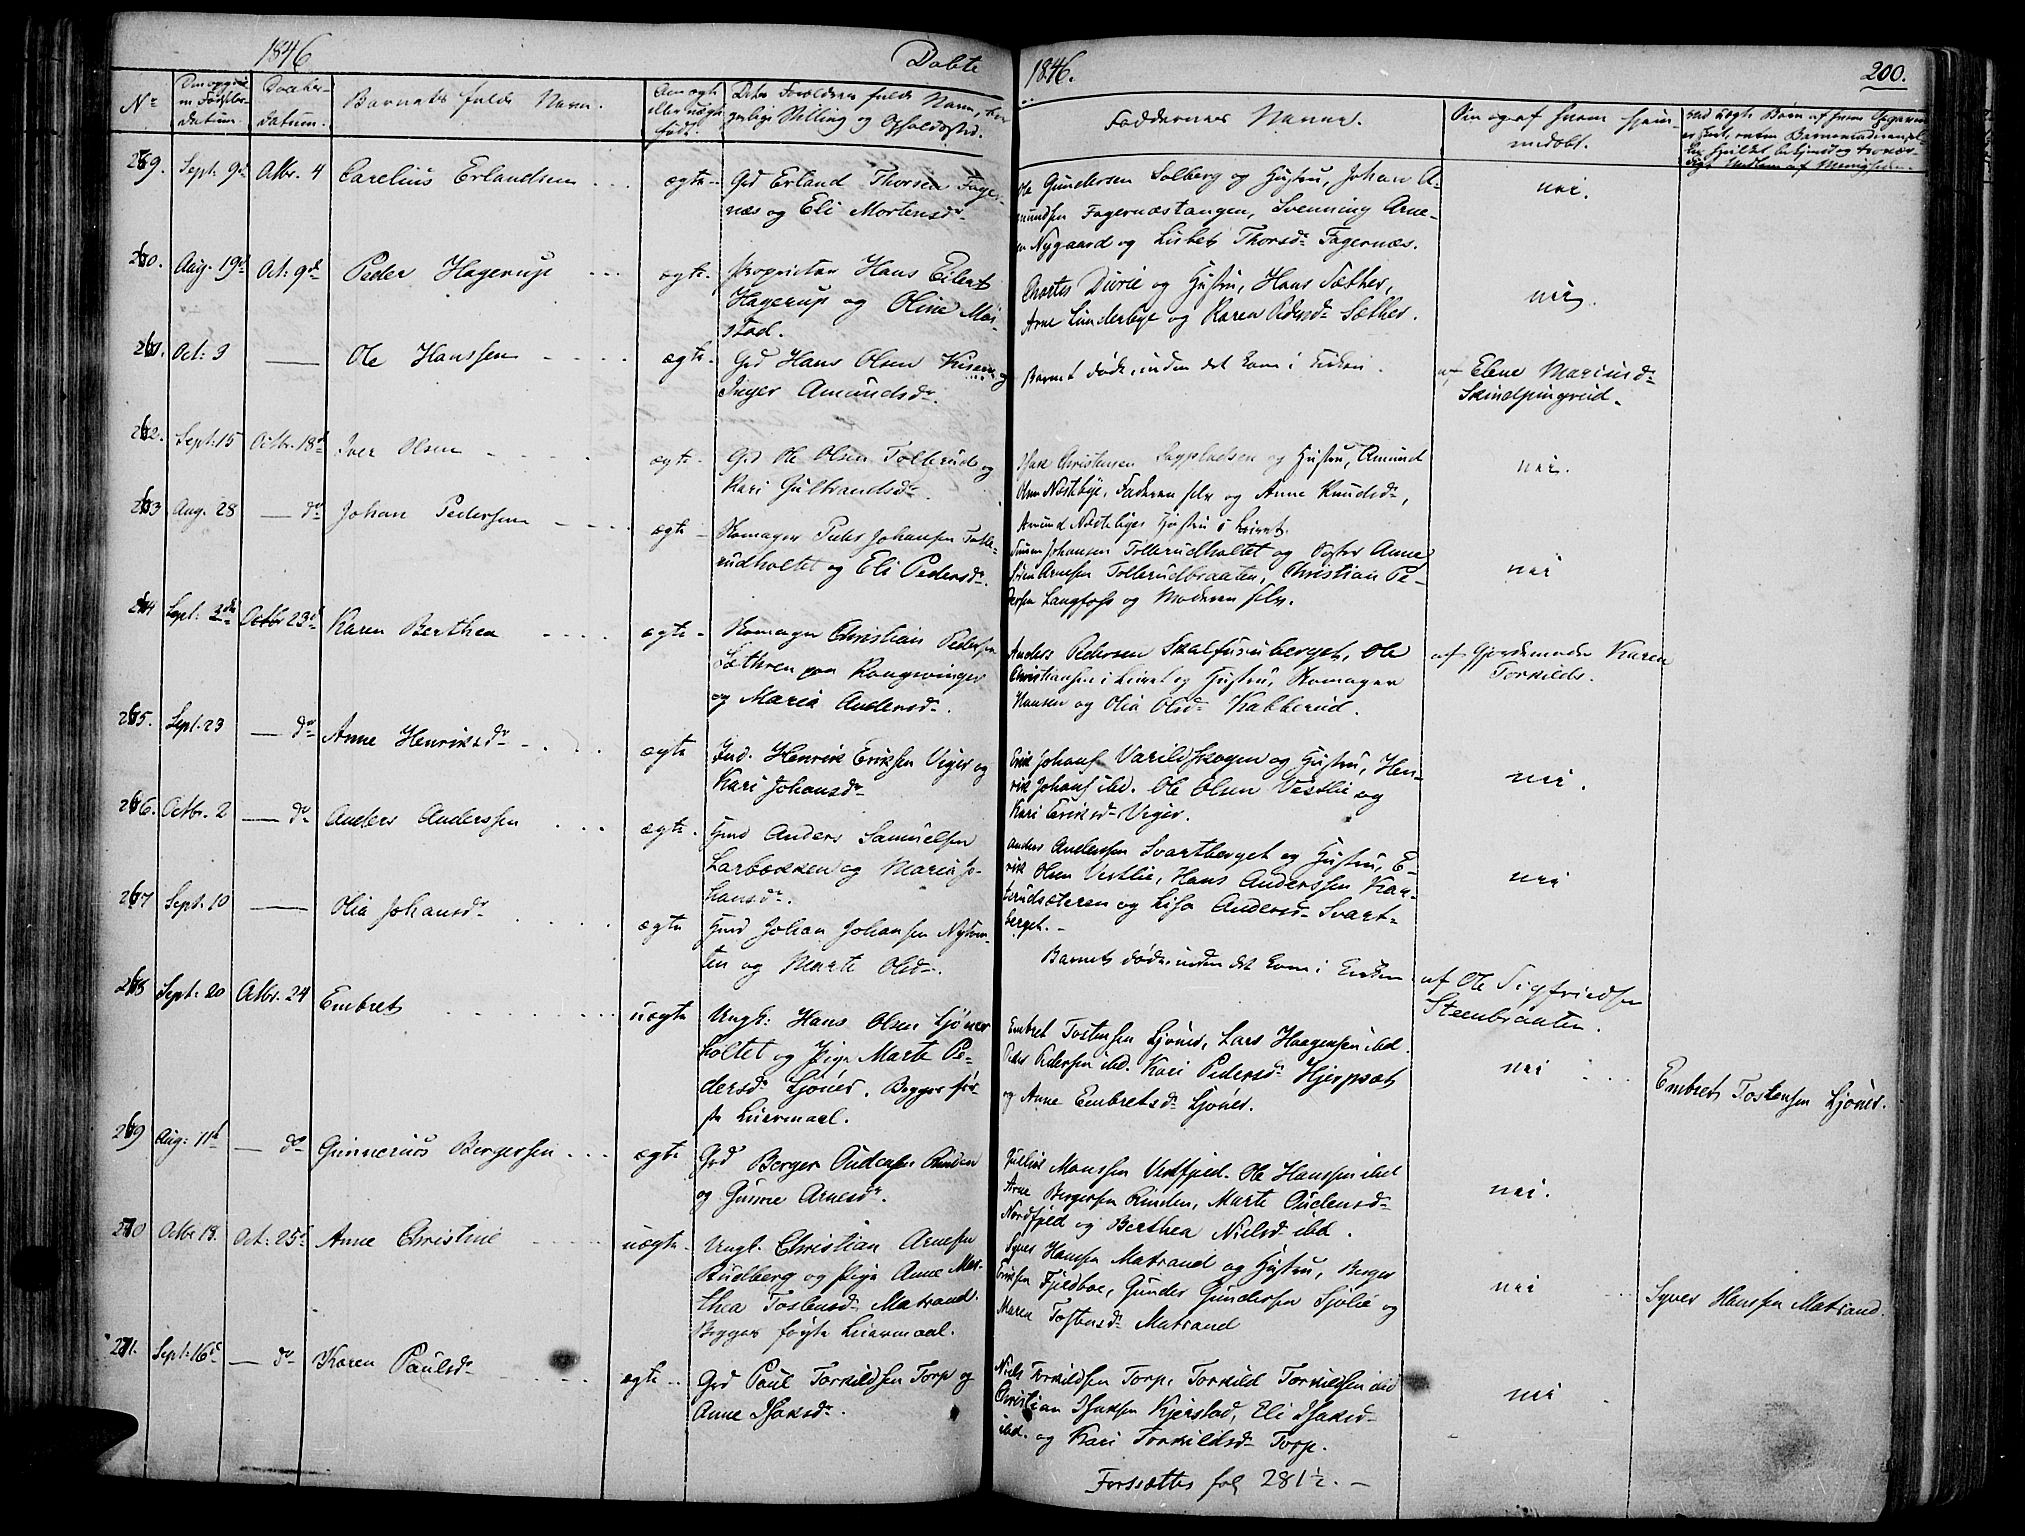 1846
Døbte
1846.
200.
No
Den opgivne Fødsels-
datum.
Daabs-
datum.
Barnets fulde Navn.
Om ægte
eller uægte
født.
Dets Forældres fulde Navn, bor-
gerlige Stilling og Opholdssted.
Faddernes Navne.
Om og af hvem hjem-
medøbt.
269.
Sept. 9de
Octbr. 4
Carelius Erlandsen
ægte
Grd Erland Thorsen Fager-
næs og Eli Mortensdr
Ole Gundersen Solberg og Hustru, Johan A-
mundsen Fagernæstangen, Svenning Arne-
Nygaard og Lisbet Thorsdr Fagernæs.
nei.
260.
Aug. 19de
Oct: 9de
Peder Hagerup
ægte
Proprietær Hans Eilert
Hagerup og Oline Moi-
stad.
og Hustru, Hans Sæther,
Arne Lunderbye og Karen Pedersdr Sæther.
nei.
261.
Oct: 9
Ole Hanssen
ægte
Grd Hans Olsen og
Inger Amundsdr.
Barnet døde, inden det kom i Kirken.
af Elene Mariusdr
262.
Sept: 15
Octbr. 18de
Iver Olsen
ægte
Grd Ole Olsen Tollerud og
Kari Gulbrandsdr.
Christensen og Hustru, Amund
Olsen Næstebye, Faderen selv og Anne Knudsdr,
Amund Næstebyes Hustru i Leiret.
nei.
263
Aug. 28
do
Johan Pedersen
ægte
Romager Peder Johansen Tolle-
rudholtet og Eli Pedersdr.
Simen Johansen Tollerudholtet og Søster Anne
Søren Arnesen Tollerudbraaten, Christian Pe-
dersen Langfoss og Moderen selv.
nei
264
Sept: 3die
Octbr 23de
Karen Berthea
ægte
Romager Christian Pedersen
Sæthren paa Kongsvinger
og Maria Andersdr.
Anders Pedersen Skalfuruberget, Ole
Christiansen i Leiret og Hustru, Romager
Hansen og Olia Olsdr Kabberud.
af Gjordemoder Karen
Torkilds.
265.
Sept. 23
do
Anne Henriksdr
ægte
Ind. Henrik Eriksen Viger og
Kari Johansdr
Erik Johans Varildskogen og Hustru, Hen-
rik Johans ibd. Ole Olsen Vestlie og
Kari Eriksdr Viger.
nei.
266.
Octbr. 2
do
Anders Anderssen
ægte
Hmd Anders Samuelsen
Larbækken og Maria Jo-
hansdr.
Anders Anderssen Svartberget og Hustru, E-
rik Olsen Vestlie, Hans Anderssen Kar-
terudsæteren og Lisa Andersdr Svart-
berget.
nei
267
Sept. 10
Olia Johansdr
ægte
Hmd Johan Johansen Nytom-
ten og Marte Olsdr.
Barnet døde, inden det kom i Kirken
af Ole Sigfriedsen
Steenbraaten.
268
Sept: 20
Octbr. 24
Embret
uægte
Ungk: Hans Olsen Ljøner-
holtet og Pige Marte Pe-
dersdr Ljøner. Begges før-
ste Leiermaal.
Embret Tostensen Ljøner, Lars Haagensen ibd.
Peder Pedersen ibd. Kari Pedersdr Hjerpsæt
og Anne Embretsdr Ljøner.
nei
Embret Tostensen Ljøner.
269
Aug: 11te
do
Gunnerius Bergersen
ægte
Grd Berger Oudensen Runden
og Gunne Arnesdr.
Julius Monssen Vestfjed. Ole Hanssen ibd
Arne Bergersen Runden, Marte Oudensdr
Nordfjed og Berthea Nielsdr ibd.
nei.
270
Octbr 18.
Oct: 25de
Anne Christine
uægte
Ungk. Christian Arnesen
Rudberg og Pige Anne Mar-
thea Tostensdr Matrand.
Begges første Leiermaal.
Syver Hanssen Matrand og Hustru, Berger
Eriksen Fjeldboe, Gunder Gundersen Sjølie og
Maren Tostensdr Matrand
nei
Syver Hanssen Matrand.
271.
Sept: 16de
do
Karen Paulsdr
ægte
Grd Paul Torkildsen Torp og
Anne Isaksdr.
Niels Torkildsen Torp, Torkild Torkildsen ibd
Christian Isaksen Kjerstad, Eli Isaksdr
ibd. og Kari Torkildsdr Torp.
nei
Forssættes fol 281½.